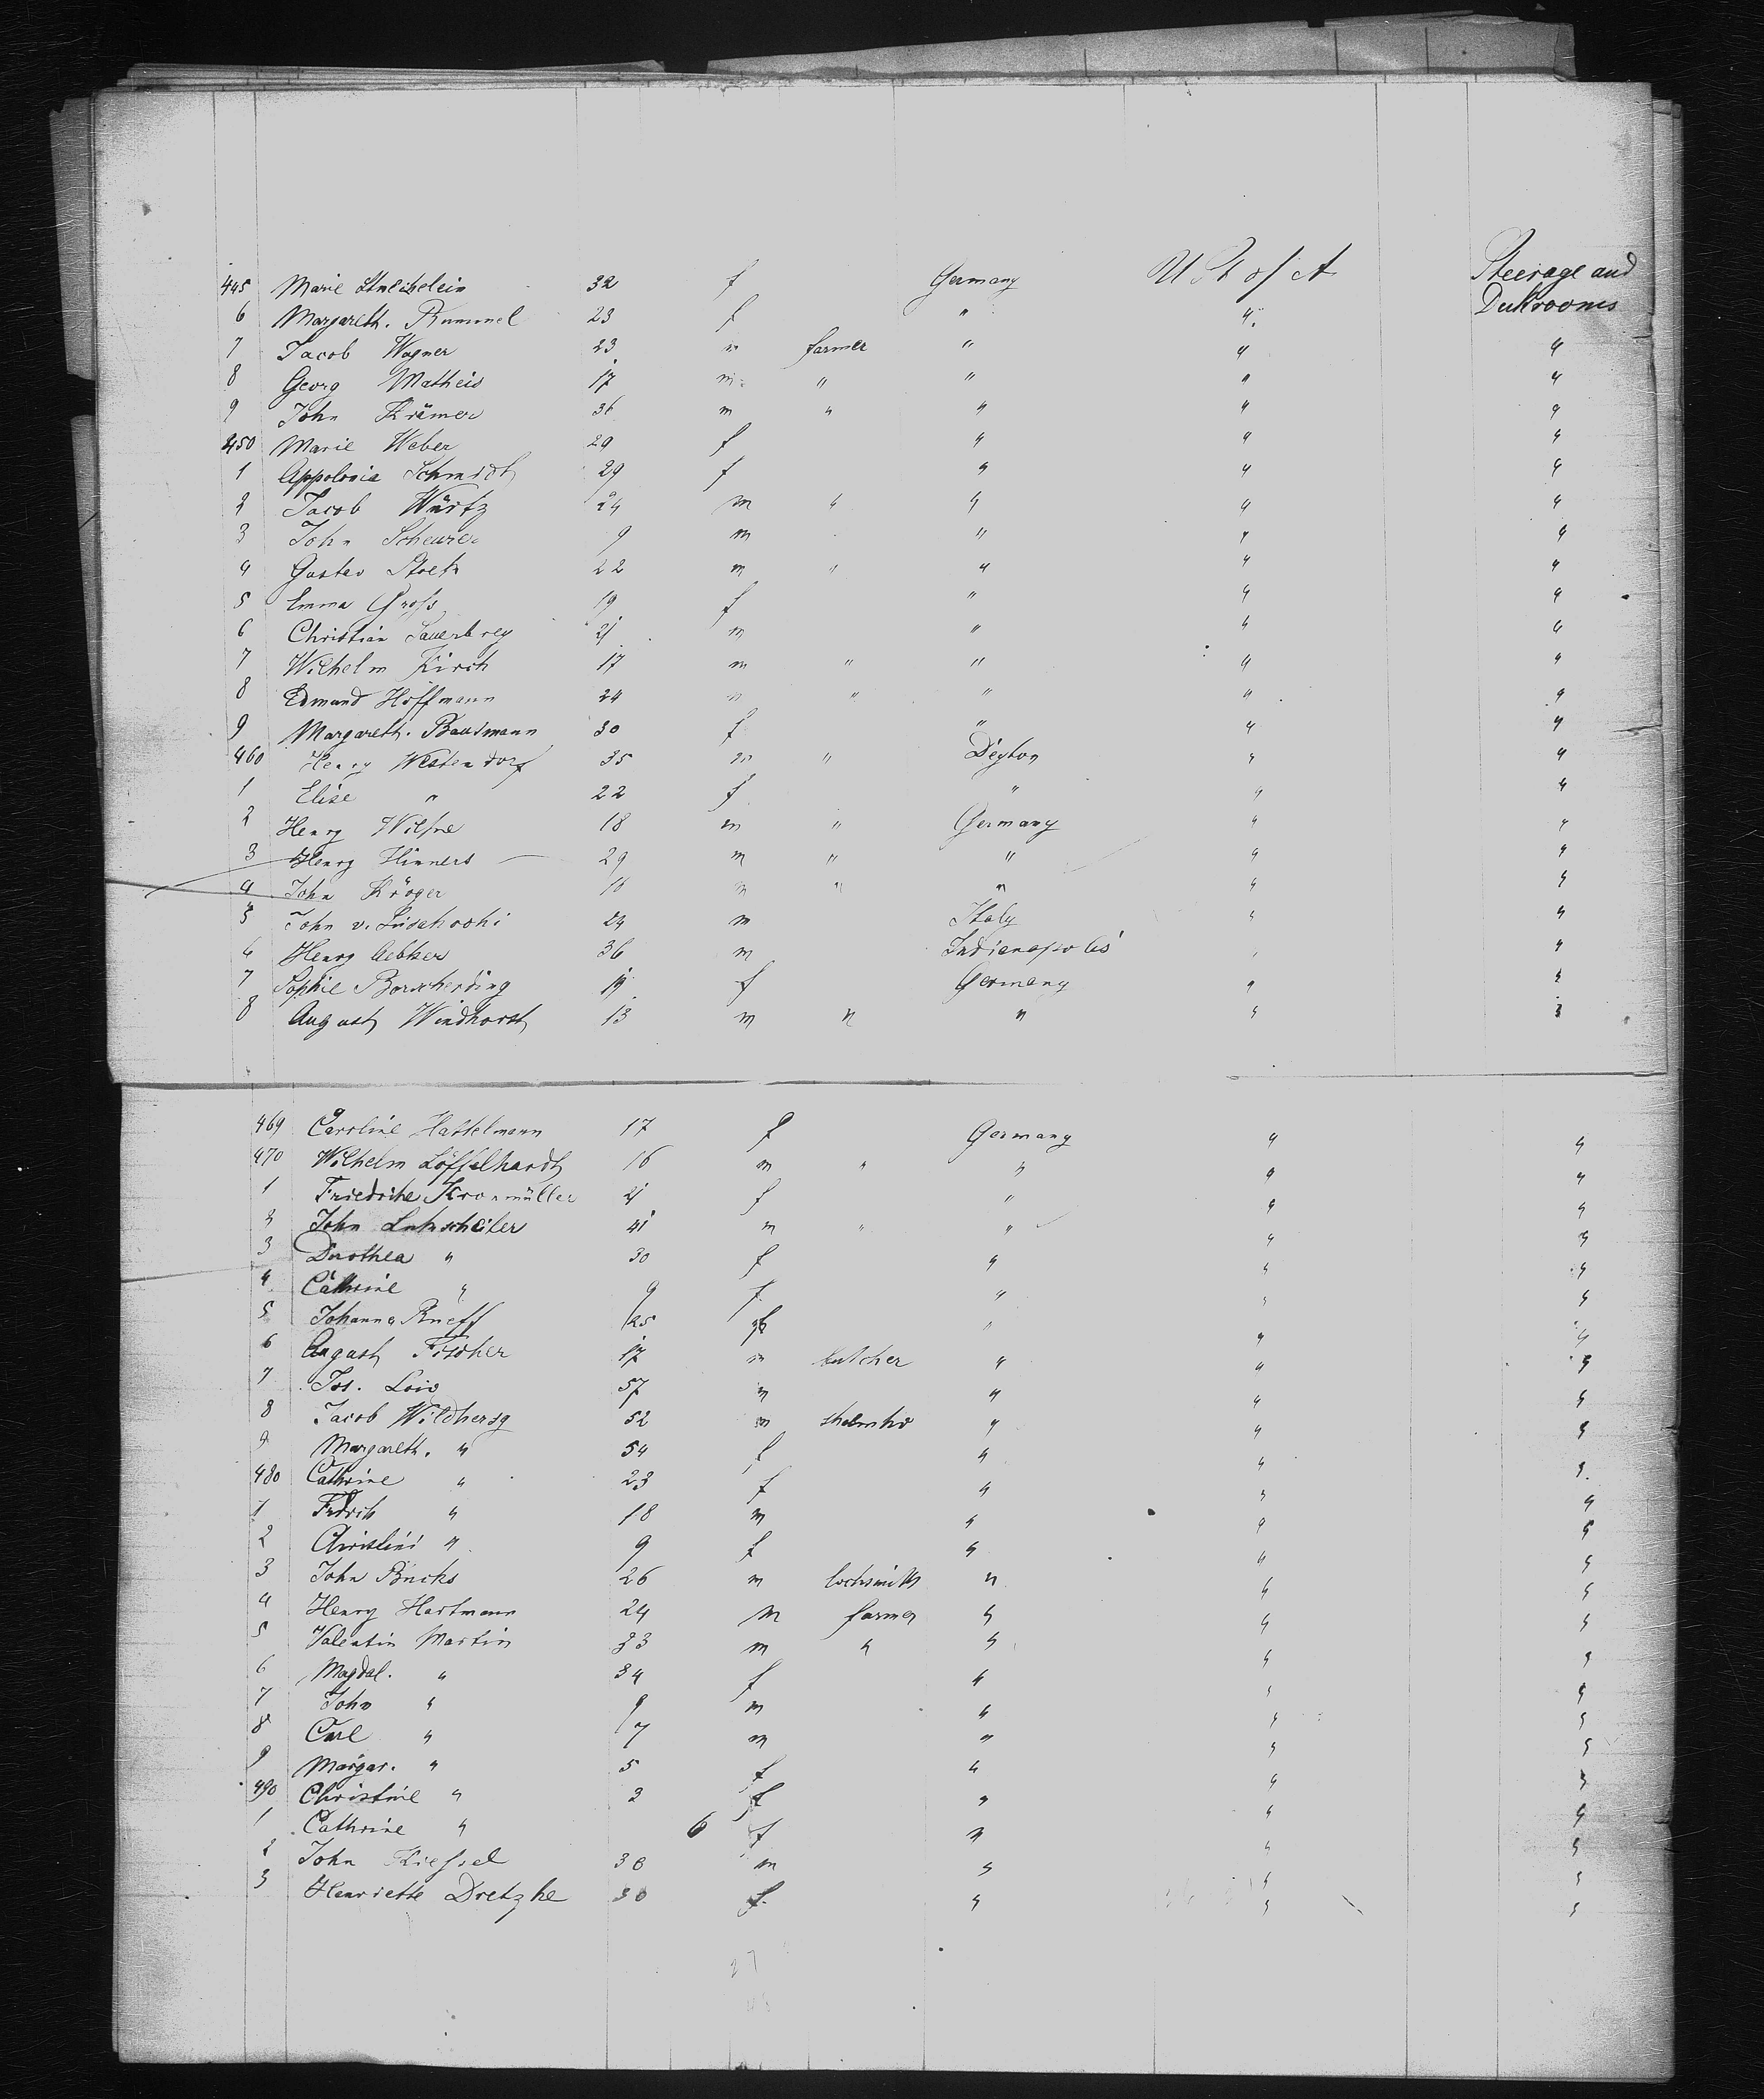 445 Marie 32 f Germany U St of A Steerage and
Deckrooms
6 Margareth. Rummel 23 f " "
7 Jacob Wagner 23 m farmer " " "
8 Georg Matheis 17 m " " " "
9 John Krämer 36 m " " " "
450 Marie Weber 29 f " " "
1 Appolonia Schmidt 29 f " " "
2 Jacob Würtz 24 m " " " "
3 John Scheurer 9 m " " "
4 Gustav Stoltz 22 m " " " "
5 Emma Groß 19 f " " "
6 Christian Sauerbrey 21 m " " "
7 Wilhelm Kirch 17 m " " " "
8 Edmund Hoffmann 24 m " " " "
9 Margareth. Baudmann 30 f " " "
460 Henry Westendorf 35 m " Deyton " "
1 Elise " 22 f " " "
2 Henry 18 m " Germany " "
3 Henry Hinners 29 m " " " "
4 John Kröger 16 m " " " "
5 John v. 24 m Italy " "
6 Henry Aebker 36 m Indianapolis " "
7 Sophie Borcherding 19 f Germany " "
8 August Windhorst 13 m " " " "
469 Caroline Hattelmann 17 f Germany " "
470 Wilhelm Löffelhardt 16 m " " " "
1 Friedrike Kronmüller 21 f " " "
2 John 41 m " " " "
3 Dorothea " 30 f " " "
4 Cathrine " 9 f " " "
5 Johanna Rueff 25 f " " "
6 August Fischer 17 m butcher " " "
7 Jos. 57 m " " "
8 Jacob Wildhersg 52 m " " "
9 Margareth. " 54 f " " "
480 Cathrine " 23 f " " "
1 Fedrch " 18 m " " "
2 Christine " 9 f " " "
3 John Bucks 26 m locksmith " " "
4 Henry Hartmann 24 m farmer " " "
5 Valentin Martin 33 m " " " "
6 Magdal. " 34 f " " "
7 John " 9 m " " "
8 Carl " 7 m " " "
9 Margar. " 5 f " " "
490 Christine " 3 f " " "
1 Cathrine " 6 f " " "
2 John Kießel 30 m " " "
3 Henriette Dretzke 30 f " " "